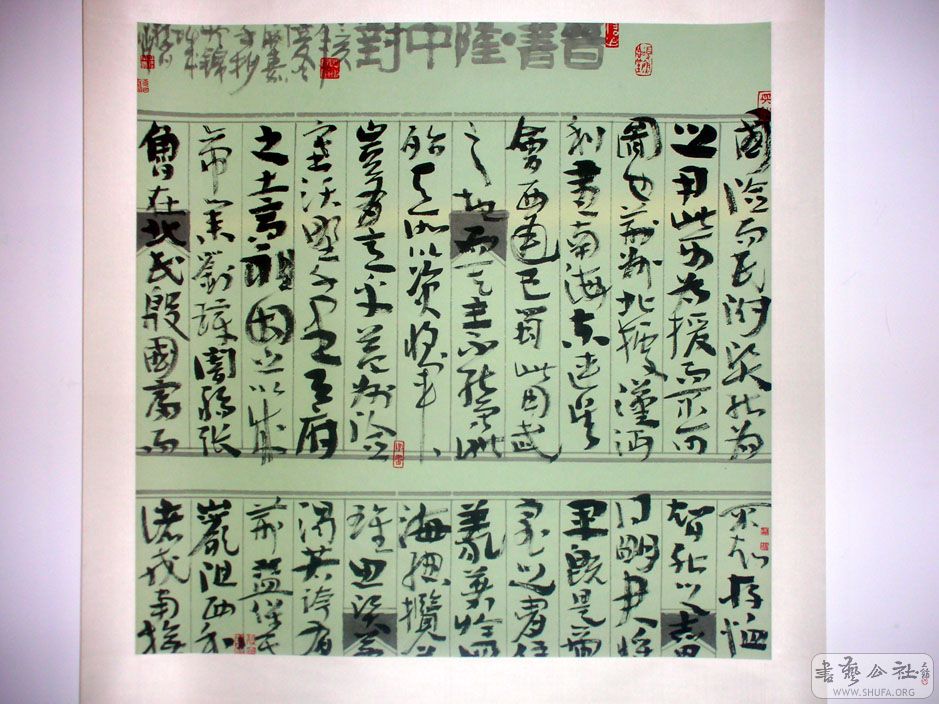 晉書·隆中對
國險而民附賢能為
之用此可為援而不可
圖也荆州北據漢沔
利盡南海東連吳
會西通巴蜀此用武
之地而其主不能守此
殆天所以資將軍
豈有意乎益州險
塞沃野千里天府
之土高祖因之以成
帝業劉璋闇弱張
魯在北民殷國富而
不知存恤
智能之士思
得明君將
軍既是帝
室之胄信
義著於四
海總攬英
雄思賢若
渴若跨有
荆益保其
巖阻西和
諸戎南撫
書藝公社
WWW.SHUFA.ORG